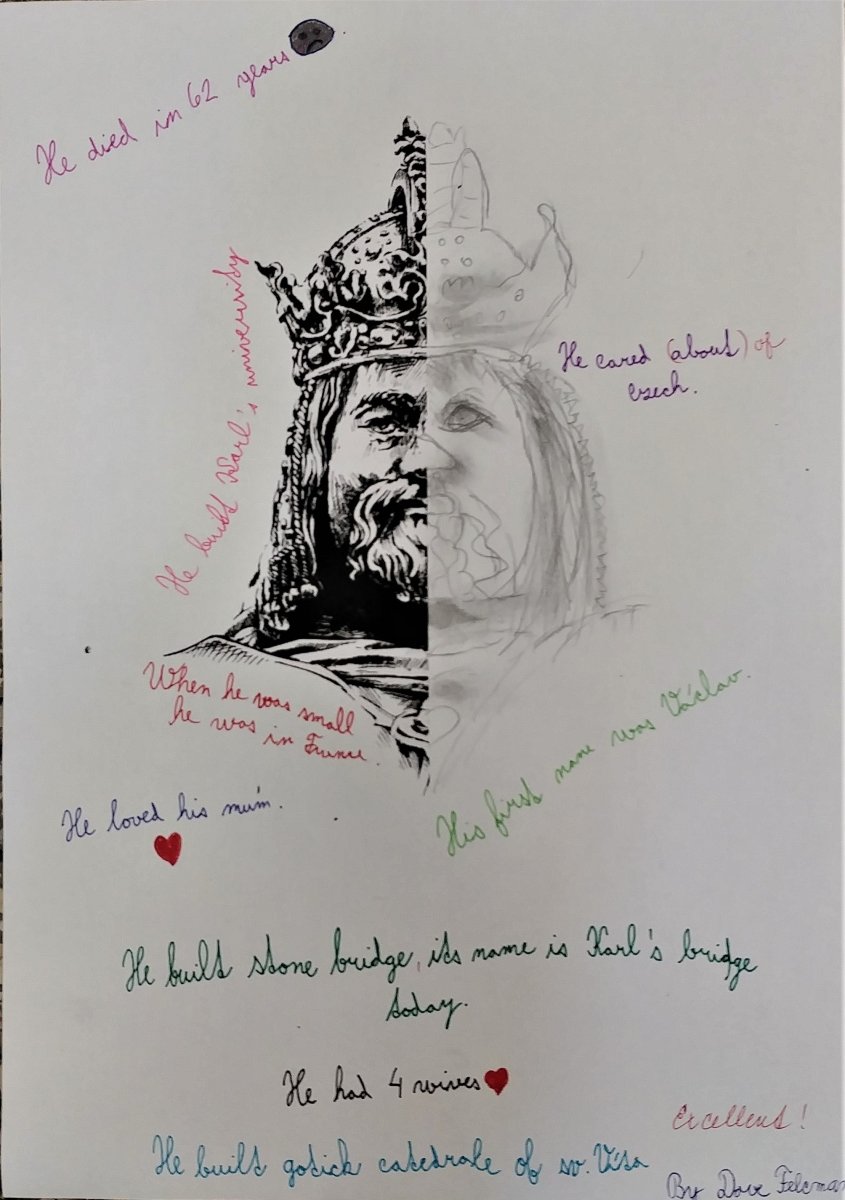 He died in 62 years
He built Karl's univerzity
He cared (about) of
czech.
When he was small
he was in France.
His first name was Václav.
He loved his mum.
He built stone bridge, its name is Karl's bridge
today.
He had 4 wives
Excellent!
He built gotick catedrale of sv. Víta
By Dave Felcman